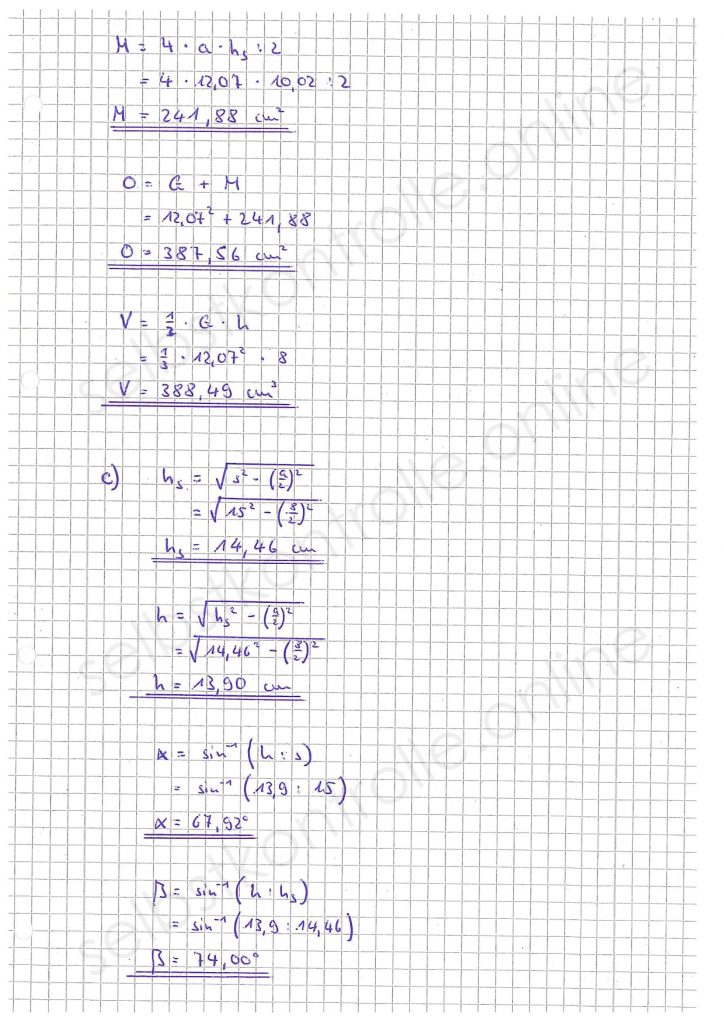 M = 4 · a · hₛ : 2
= 4 · 12,07 · 10,02 : 2
M = 241,88 cm²
O = G + M
= 12,07² + 241,88
O = 387,56 cm²
V = 1/3 · G · h
= 1/3 · 12,07² · 8
V = 388,49 cm³
c) hₛ = √(s² - (a/2)²)
= √(15² - (8/2)²)
hₛ = 14,46 cm
h = √(hₛ² - (a/2)²)
= √(14,46² - (8/2)²)
h = 13,90 cm
α = sin⁻¹ (h : s)
= sin⁻¹ (13,9 : 15)
α = 67,92°
β = sin⁻¹ (h : hₛ)
= sin⁻¹ (13,9 : 14,46)
β = 74,00°
selbstkontrolle.online
selbstkontrolle.online
selbstkontrolle.online